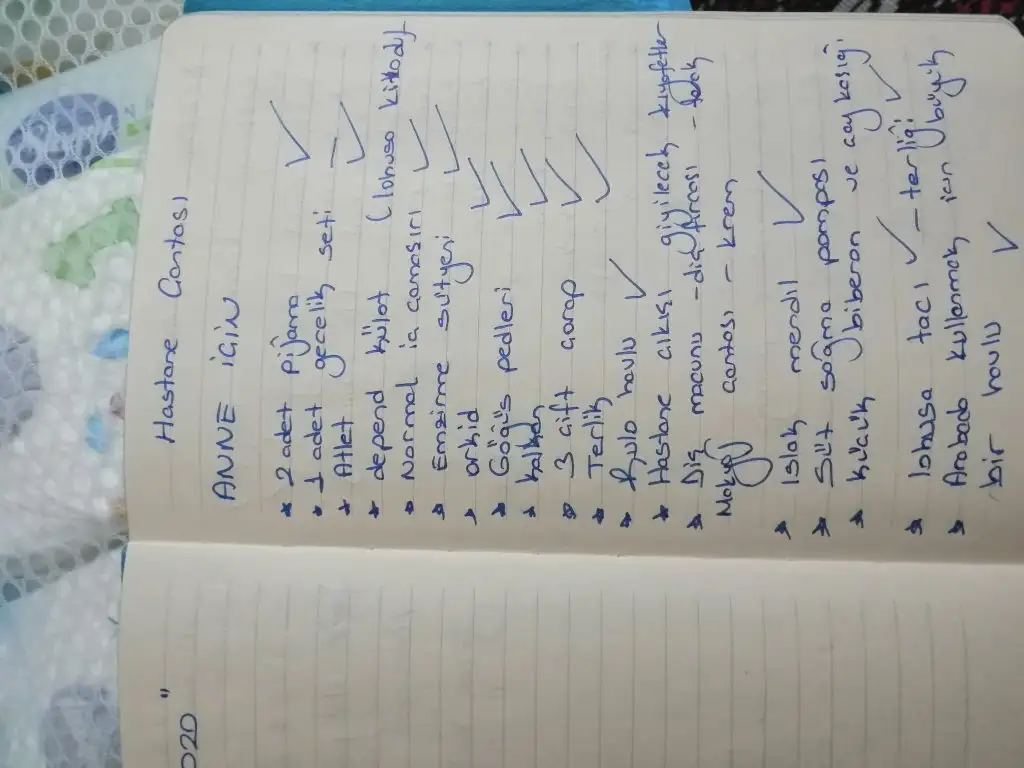 Hastane Çantası
ANNE için
* 2 adet pijama ✓
* 1 adet gecelik seti —
* Atlet ✓
* depend külot (lohusa kilodu)
* Normal iç çamaşırı ✓
* Emzirme sütyeni ✓
* orkid ✓
* Göğüs pedleri ✓
* kalkan ✓
* 3 çift çorap ✓
* Terlik ✓
* Rulo havlu ✓
* Hastane çıkışı giyilecek kıyafetler
* Diş macunu - diş fırçası - tarak
Makyaj çantası - krem
* Islak mendil ✓
* Süt sağma pompası
* Küçük biberon ve çay kaşığı
* lohusa tacı ✓ - terliği ✓
* Arabada kullanmak için büyük
bir havlu ✓
020 "